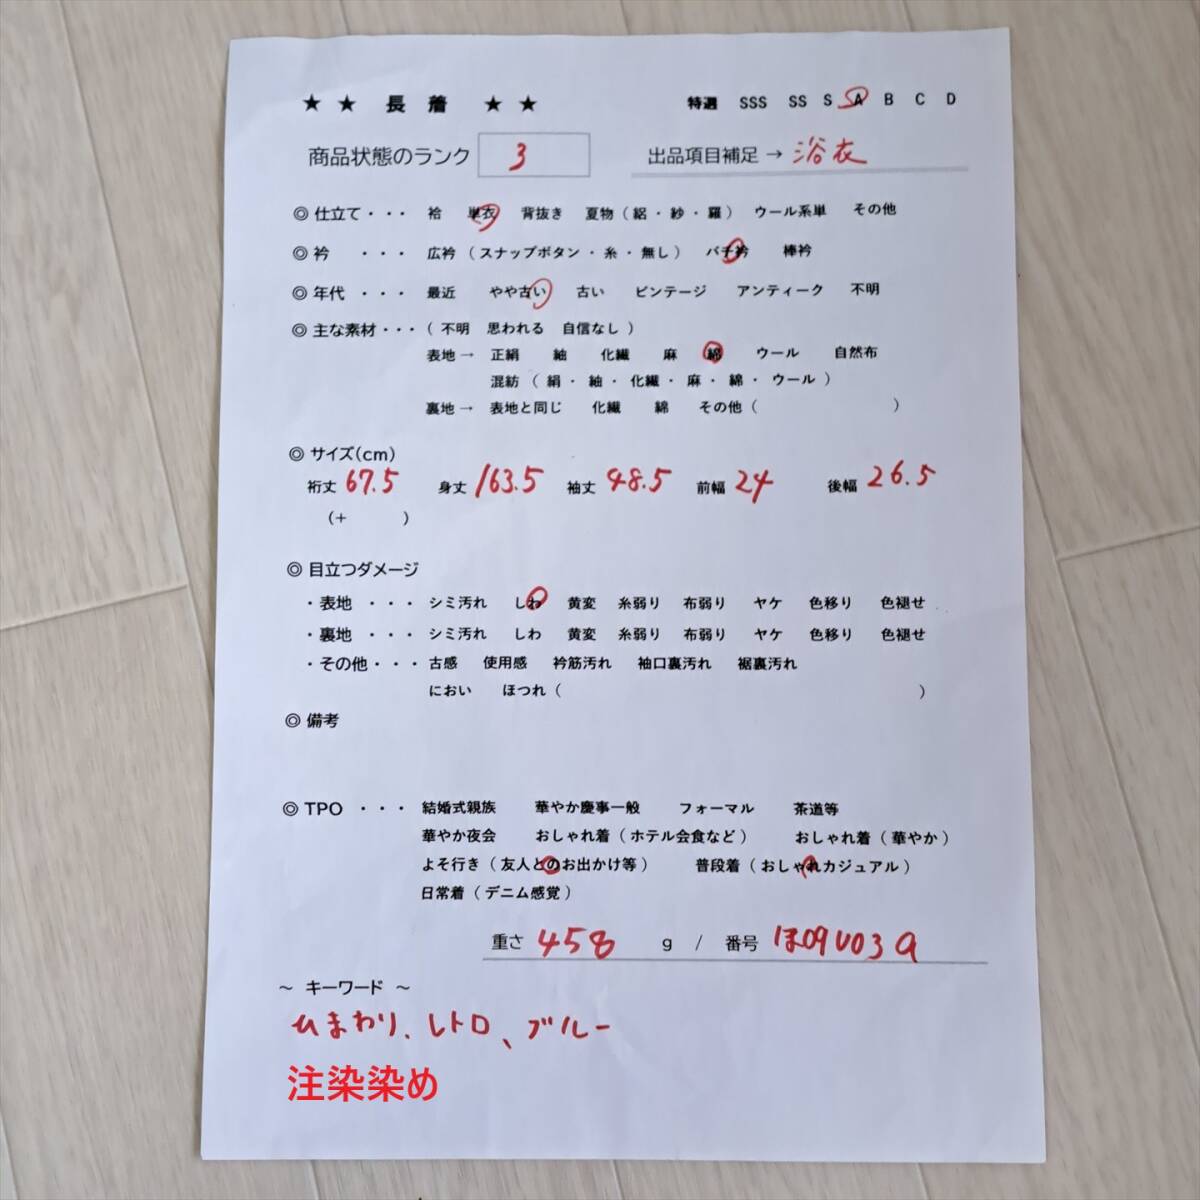 ★ ★ 長 着 ★ ★ 特選 SSS SS S A B C D
商品状態のランク 3 出品項目補足 → 浴衣
◎ 仕立て・・・ 袷 単衣 背抜き 夏物 ( 絽 ・ 紗 ・ 羅 ) ウール系単 その他
◎ 衿 ・・・ 広衿 ( スナップボタン ・ 糸 ・ 無し ) バチ衿 棒衿
◎ 年代 ・・・ 最近 やや古い 古い ビンテージ アンティーク 不明
◎ 主な素材・・・ ( 不明 思われる 自信なし )
表地 → 正絹 紬 化繊 麻 綿 ウール 自然布
混紡 ( 絹 ・ 紬 ・ 化繊 ・ 麻 ・ 綿 ・ ウール )
裏地 → 表地と同じ 化繊 綿 その他 ( )
◎ サイズ(cm)
裄丈 67.5 身丈 163.5 袖丈 48.5 前幅 24 後幅 26.5
(+ )
◎ 目立つダメージ
・表地 ・・・ シミ汚れ しわ 黄変 糸弱り 布弱り ヤケ 色移り 色褪せ
・裏地 ・・・ シミ汚れ しわ 黄変 糸弱り 布弱り ヤケ 色移り 色褪せ
・その他・・・ 古感 使用感 衿筋汚れ 袖口裏汚れ 裾裏汚れ
におい ほつれ ( )
◎ 備考
◎ TPO ・・・ 結婚式親族 華やか慶事一般 フォーマル 茶道等
華やか夜会 おしゃれ着 ( ホテル会食など ) おしゃれ着 ( 華やか )
よそ行き ( 友人とのお出かけ等 ) 普段着 ( おしゃれカジュアル )
日常着 ( デニム感覚 )
重さ 458 g / 番号 ほ09U03a
～ キーワード ～
ひまわり、レトロ、ブルー
注染染め